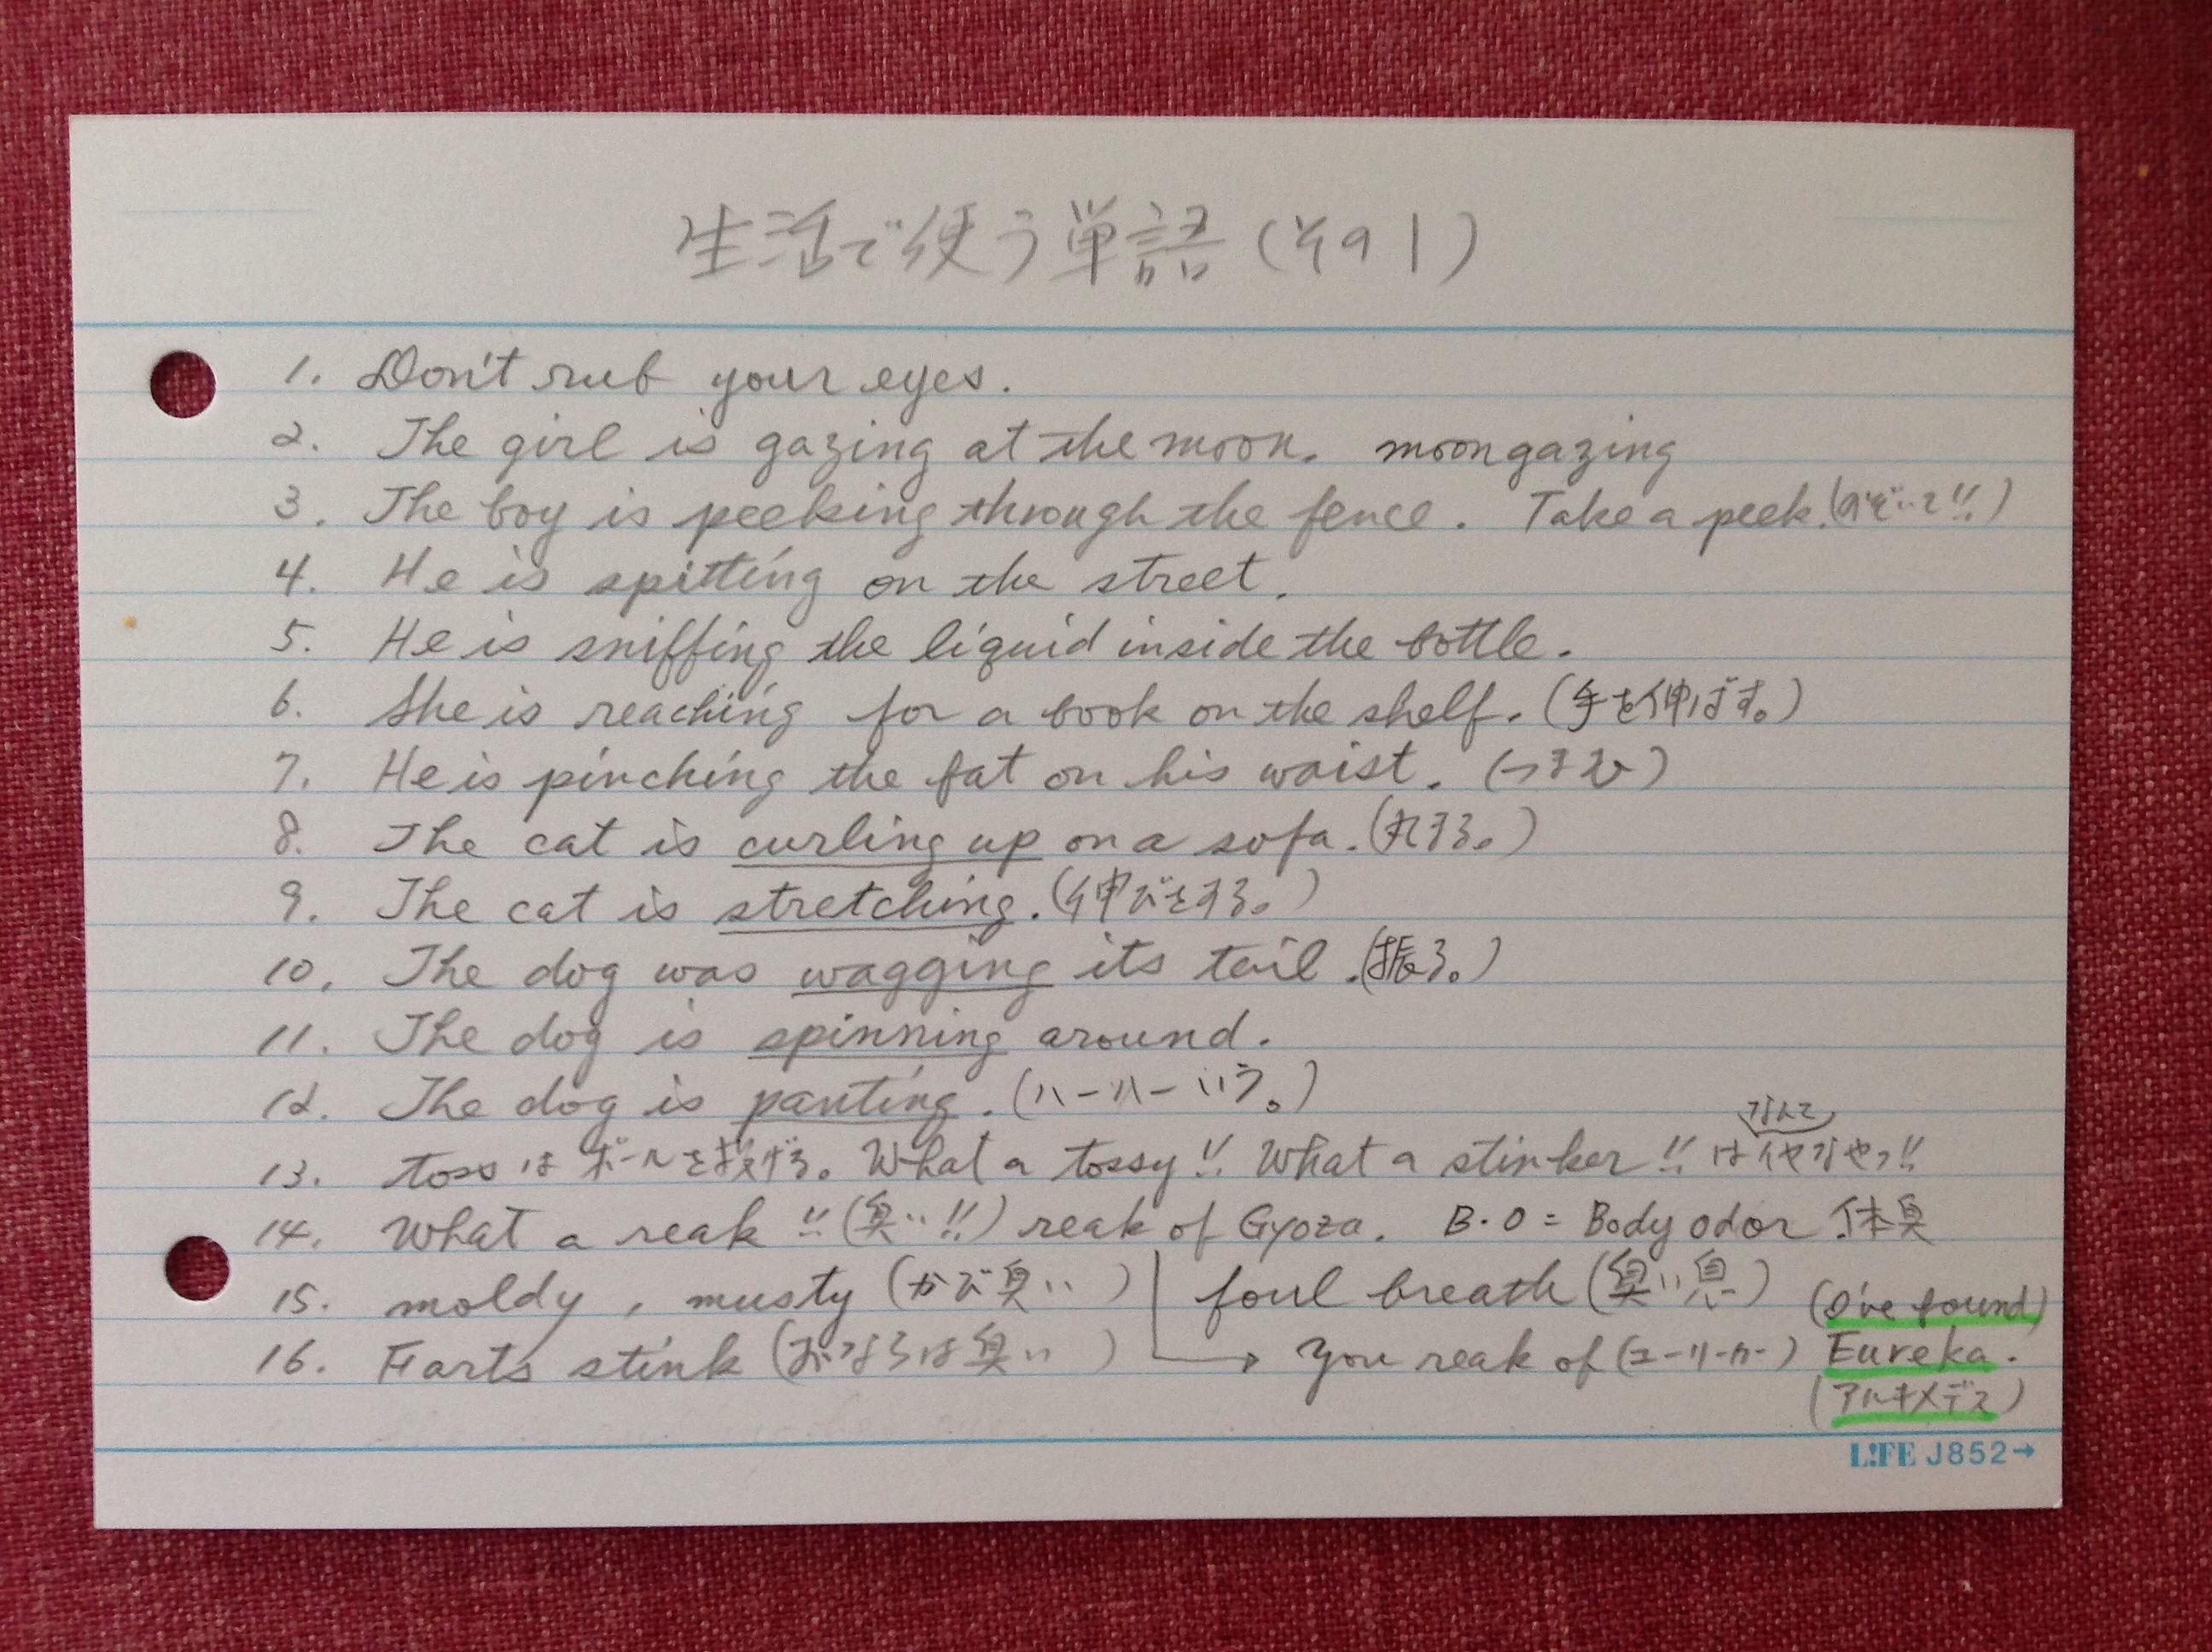 生活で使う単語(その1)
1. Don't rub your eyes.
2. The girl is gazing at the moon. moongazing
3. The boy is peeking through the fence. Take a peek.(のぞいて!!)
4. He is spitting on the street.
5. He is sniffing the liquid inside the bottle.
6. She is reaching for a book on the shelf. (手を伸ばす。)
7. He is pinching the fat on his waist. (つまむ)
8. The cat is curling up on a sofa.(丸まる。)
9. The cat is stretching.(伸びをする。)
10. The dog was wagging its tail.(振る。)
11. The dog is spinning around.
12. The dog is panting. (ハーハーいう。)
なんて
13. toss は ボールを投げる。 What a tossy!! What a stinker!! なやつ!!
14. What a reak!! (臭い!!) reak of Gyoza. B.O = Body odor 体臭
15. moldy, musty (かび臭い) foul breath (臭い息) (I've found)
16. Farts stink (おならは臭い) → you reak of (ユーリーカー) Eureka.
(アルキメデス)
L!FE J852→